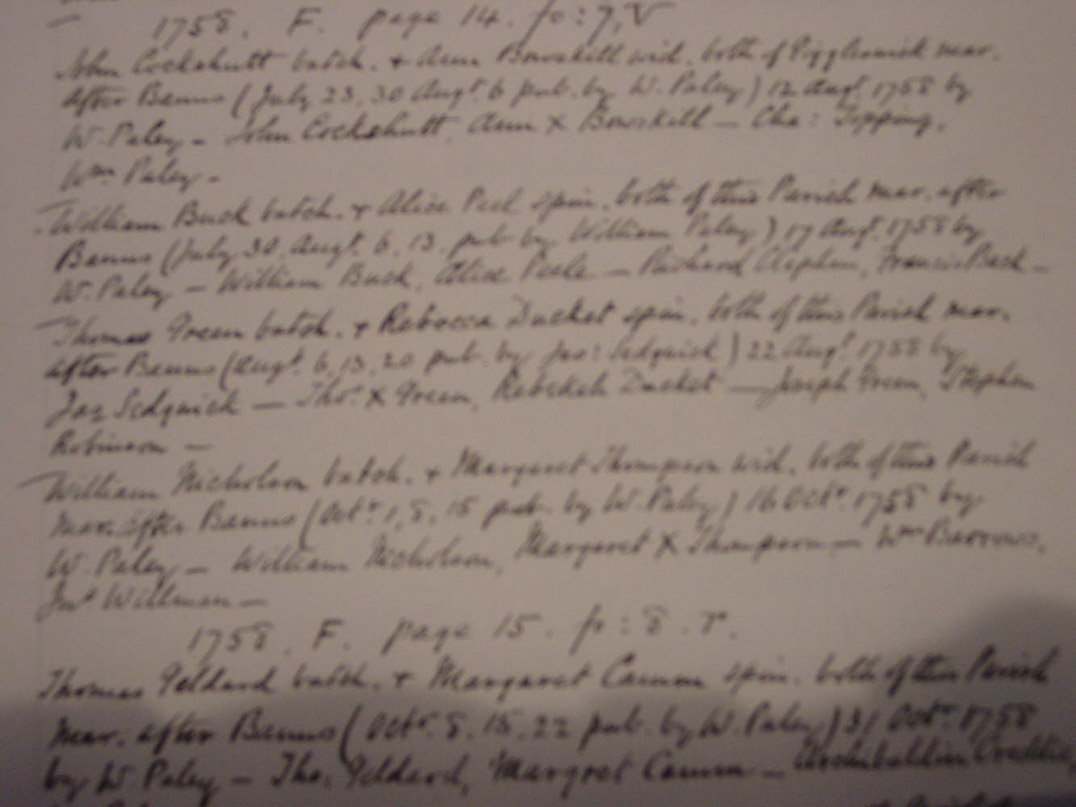 1758. F. page 14. fo: 7. V
John Cockshutt batch. & Ann Bowskill wid. both of Giggleswick mar.
after Banns (July 23, 30 Augt. 6 pub. by W. Paley) 12 Augt. 1758 by
W. Paley - John Cockshutt, Ann X Bowskill - Cha: Topping,
Wm. Paley -
William Buck batch. & Alice Peel spin. both of this Parish mar. after
Banns (July 30, Augt. 6, 13. pub by William Paley) 17 Augt. 1758 by
W. Paley - William Buck, Alice Peele - Richard
Thomas Green batch. & Rebecca Ducket spin. both of this Parish mar.
after Banns (Augt. 6, 13, 20 pub. by Jas: Sedgwick) 22 Augt. 1758 by
Jas Sedgwick - Thos. X Green, Rebekah Ducket - Joseph Green, Stephen
Robinson -
William Nicholson batch. & Margaret Thompson wid. both of this Parish
mar. after Banns (Octr. 1, 8, 15 pub. by W. Paley) 16 Octr. 1758 by
W. Paley - William Nicholson, Margaret X Thompson - Wm Barrows,
Wilman -
1758. F. page 15. fo: 8. r.
Thomas Geldard batch. & Margaret spin. both of this Parish
mar. after Banns (Octr. 8, 15, 22 pub. by W. Paley) 31 Octr. 1758
by W. Paley - Tho. Geldard, Margret